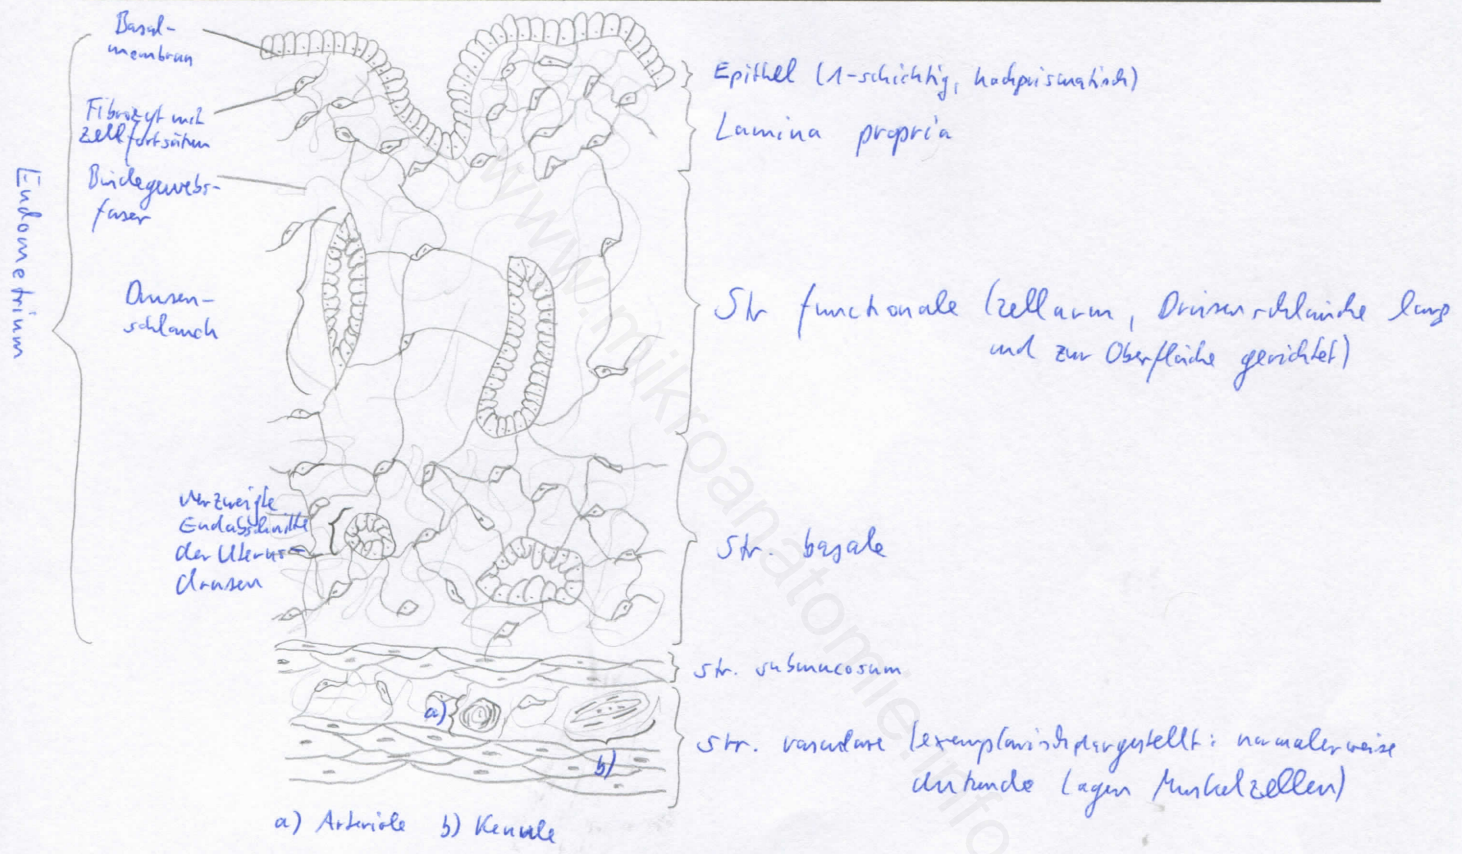 Basal-
membran
Fibrozyt mit
Zellfortsätzen
Bindegewebs-
faser
Drüsen-
schlauch
Endometrium
verzweigte
Endabschnitte
der Uterus-
drüsen
Epithel (1-schichtig, hochprismatisch)
Lamina propria
Str functionale (zellarm, Drüsenschläuche lang
und zur Oberfläche gerichtet)
Str. basale
str. submucosum
str. vasculare (exemplarisch dargestellt: normalerweise
dutzende Lagen Muskelzellen)
a)
b)
a) Arteriole b) Venule
www.mikroanatomie.info